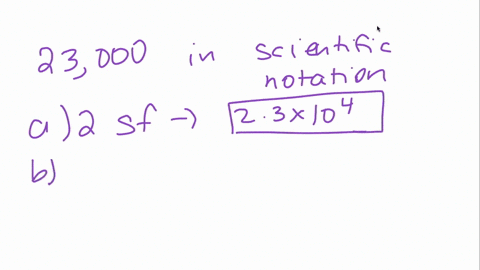 23,000 in scientific
notation
a) 2 sf → 2.3×10⁴
b)